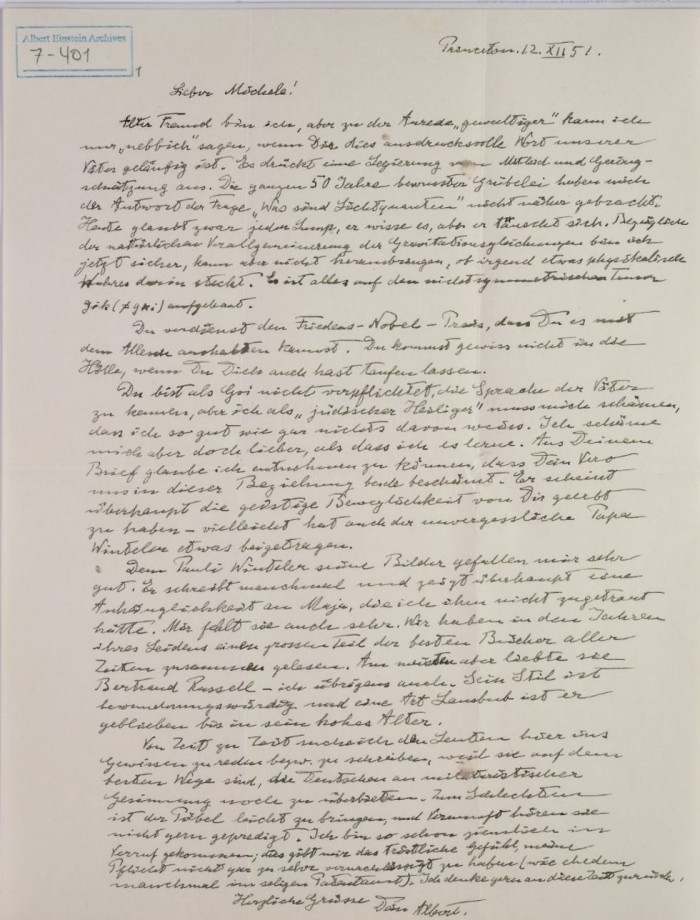 Albert Einstein Archives
7-401
1
Princeton. 12. XII 51.
Lieber Michele!
Alter Freund bin ich, aber zu der Anrede „gewaltiger" kann ich
nur „nebbich" sagen, wenn Dir dies ausdrucksvolle Wort unserer
Väter geläufig ist. Es drückt eine Legierung von Mitleid und Gering-
schätzung aus. Die ganzen 50 Jahre bewusster Grübelei haben mich
der Antwort der Frage „Was sind Lichtquanten" nicht näher gebracht.
Heute glaubt zwar jeder Lump, er wisse es, aber er täuscht sich. Bezüglich
der natürlichen Verallgemeinerung der Gravitationsgleichungen bin ich
jetzt sicher, kann aber nicht herausbringen, ob irgend etwas physikalisch
Wahres darin steckt. Es ist alles auf den nichtsymmetrischen Tensor
gik (≠ gki) aufgebaut.
Du verdienst den Friedens-Nobel-Preis, dass Du es mit
dem Allende aushalten kannst. Du kommst gewiss nicht in die
Hölle, wenn Du Dich auch hast taufen lassen.
Du bist als Goi nicht verpflichtet, die Sprache der Väter
zu kennen, aber ich als „jüdischer Heiliger" muss mich schämen,
dass ich so gut wie gar nichts davon weiss. Ich schäme
mich aber doch lieber, als dass ich es lerne. Aus Deinem
Brief glaube ich entnehmen zu können, dass Dein Vero
uns in dieser Beziehung beide beschämt. Er scheint
überhaupt die geistige Beweglichkeit von Dir geerbt
zu haben - vielleicht hat auch der unvergessliche Papa
Winteler etwas beigetragen.
Dem Pauli Winteler seine Bilder gefallen mir sehr
gut. Er schreibt manchmal und zeigt überhaupt eine
Anhänglichkeit an Maja, die ich ihm nicht zugetraut
hätte. Mir fehlt sie auch sehr. Wir haben in den Jahren
ihres Leidens einen grossen Teil der besten Bücher aller
Zeiten zusammen gelesen. Am meisten aber liebte sie
Bertrand Russell - ich übrigens auch. Sein Stil ist
bewundernswürdig und eine Art Lausbub ist er
geblieben bis in sein hohes Alter.
Von Zeit zu Zeit suche ich den Leuten hier ins
Gewissen zu reden bezw. zu schreiben, weil sie auf dem
besten Wege sind, die Deutschen an militaristischer
Gesinnung noch zu überbieten. Zum Schlechten
ist der Pöbel leicht zu bringen, und Vernunft hören sie
nicht gern gepredigt. Ich bin so schon ziemlich in
Verruf gekommen; das gibt mir das tröstliche Gefühl, meine
Pflicht nicht gar zu sehr vernachlässigt zu haben (wie ehedem
manchmal im seligen Patentamt). Ich denke gern an diese Zeit zurück.
Herzliche Grüsse Dein Albert.